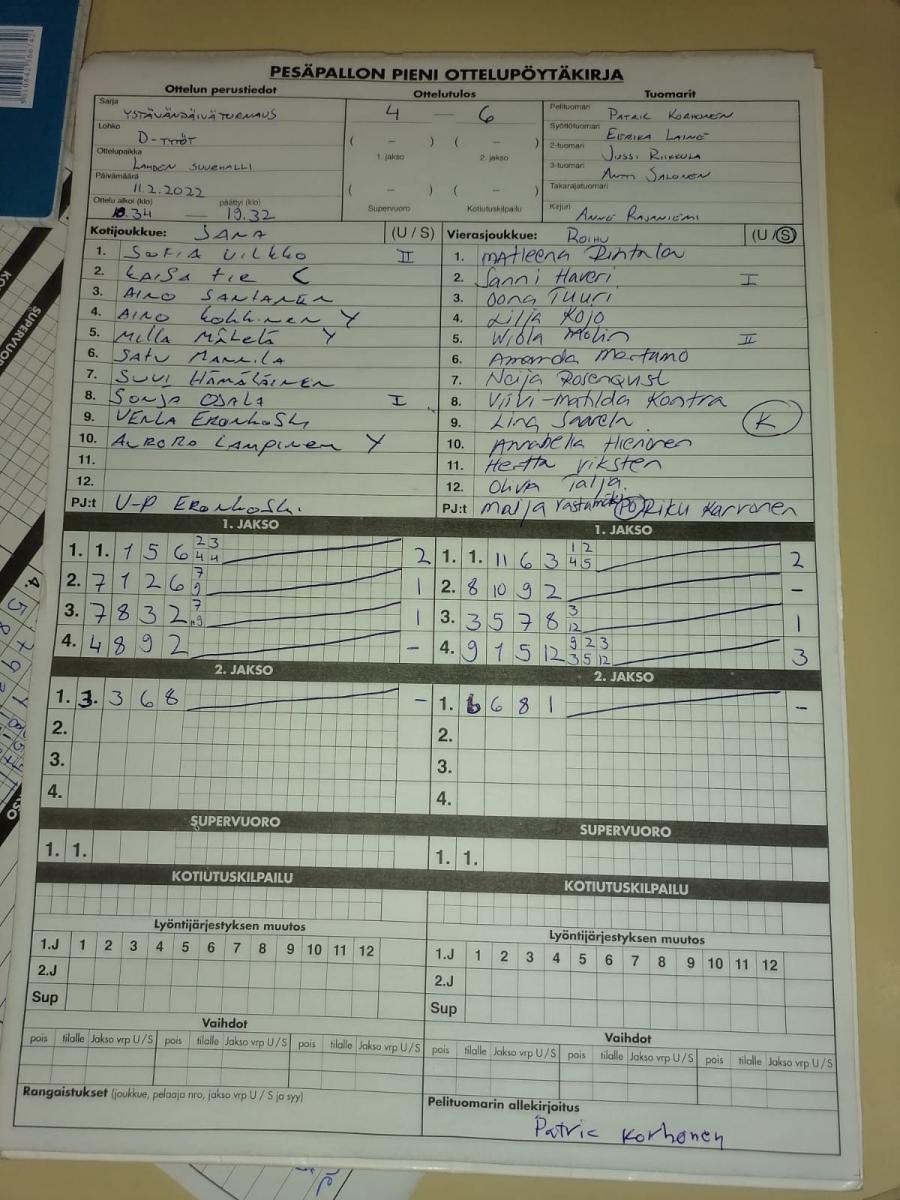 PESÄPALLON PIENI OTTELUPÖYTÄKIRJA
Ottelun perustiedot
Ottelutulos
Tuomarit
Sarja
YSTÄVÄNPÄIVÄTURNAUS
Lohko
D-TYTÖT
Ottelupaikka
LAHDEN SUURHALLI
Päivämäärä
11.2.2022
Ottelu alkoi (klo) päättyi (klo)
— 19.32
4 — 6
( – ) ( – )
1. jakso 2. jakso
( – ) ( – )
Supervuoro Kotiutuskilpailu
Pelituomari PATRIC KORHONEN
Syöttötuomari EERIKA LAINE
2-tuomari JUSSI RIIKKULA
3-tuomari ANTTI SALONEN
Takarajatuomari
Kirjuri ANNE RAJANIEMI
Kotijoukkue: (U / S)
1. SOFIA VILKKO II
2. KAISA
3. AINO SANTANEN
4. AINO Y
5. Milla Mäkelä Y
6. SATU MANNILA
7. SUVI HÄMÄLÄINEN
8. SONJA OJALA I
9. VENLA
10. LAMPINEN Y
11.
12.
PJ:t U-P
Vierasjoukkue: ROIHU (U / S)
1. Matleena Rintala
2. Sanni Haveri I
3. Oona Tuuri
4. Lilja Kojo
5. Wiola Molin II
6. Amanda
7. Rosenqvist
8. Viivi-Matilda Kontra
9. K
10. Annabella Hienonen
11. Hertta Viksten
12. Talja
PJ:t Maija Rastamäki (PJ) Riku Karvonen
1. JAKSO
1. 1. 1 5 6 2 3 4 4 2
2. 7 1 2 6 7 9 1
3. 7 8 3 2 7 9 1
4. 4 8 9 2 –
1. JAKSO
1. 1. 11 6 3 1 2 4 5 2
2. 8 10 9 2 –
3. 3 5 7 8 3 12 1
4. 9 1 5 12 9 2 3 3 5 12 3
2. JAKSO
1. 3. 3 6 8 –
2.
3.
4.
2. JAKSO
1. 6 6 8 1 –
2.
3.
4.
SUPERVUORO
1. 1.
SUPERVUORO
1. 1.
KOTIUTUSKILPAILU
KOTIUTUSKILPAILU
Lyöntijärjestyksen muutos
1.J 1 2 3 4 5 6 7 8 9 10 11 12
2.J
Sup
Lyöntijärjestyksen muutos
1.J 1 2 3 4 5 6 7 8 9 10 11 12
2.J
Sup
Vaihdot
pois tilalle Jakso vrp U / S pois tilalle Jakso vrp U / S pois tilalle Jakso vrp U / S
Vaihdot
pois tilalle Jakso vrp U / S pois tilalle Jakso vrp U / S pois tilalle Jakso vrp U / S
Rangaistukset (joukkue, pelaaja nro, jakso vrp U / S ja syy)
Pelituomarin allekirjoitus
Patric Korhonen